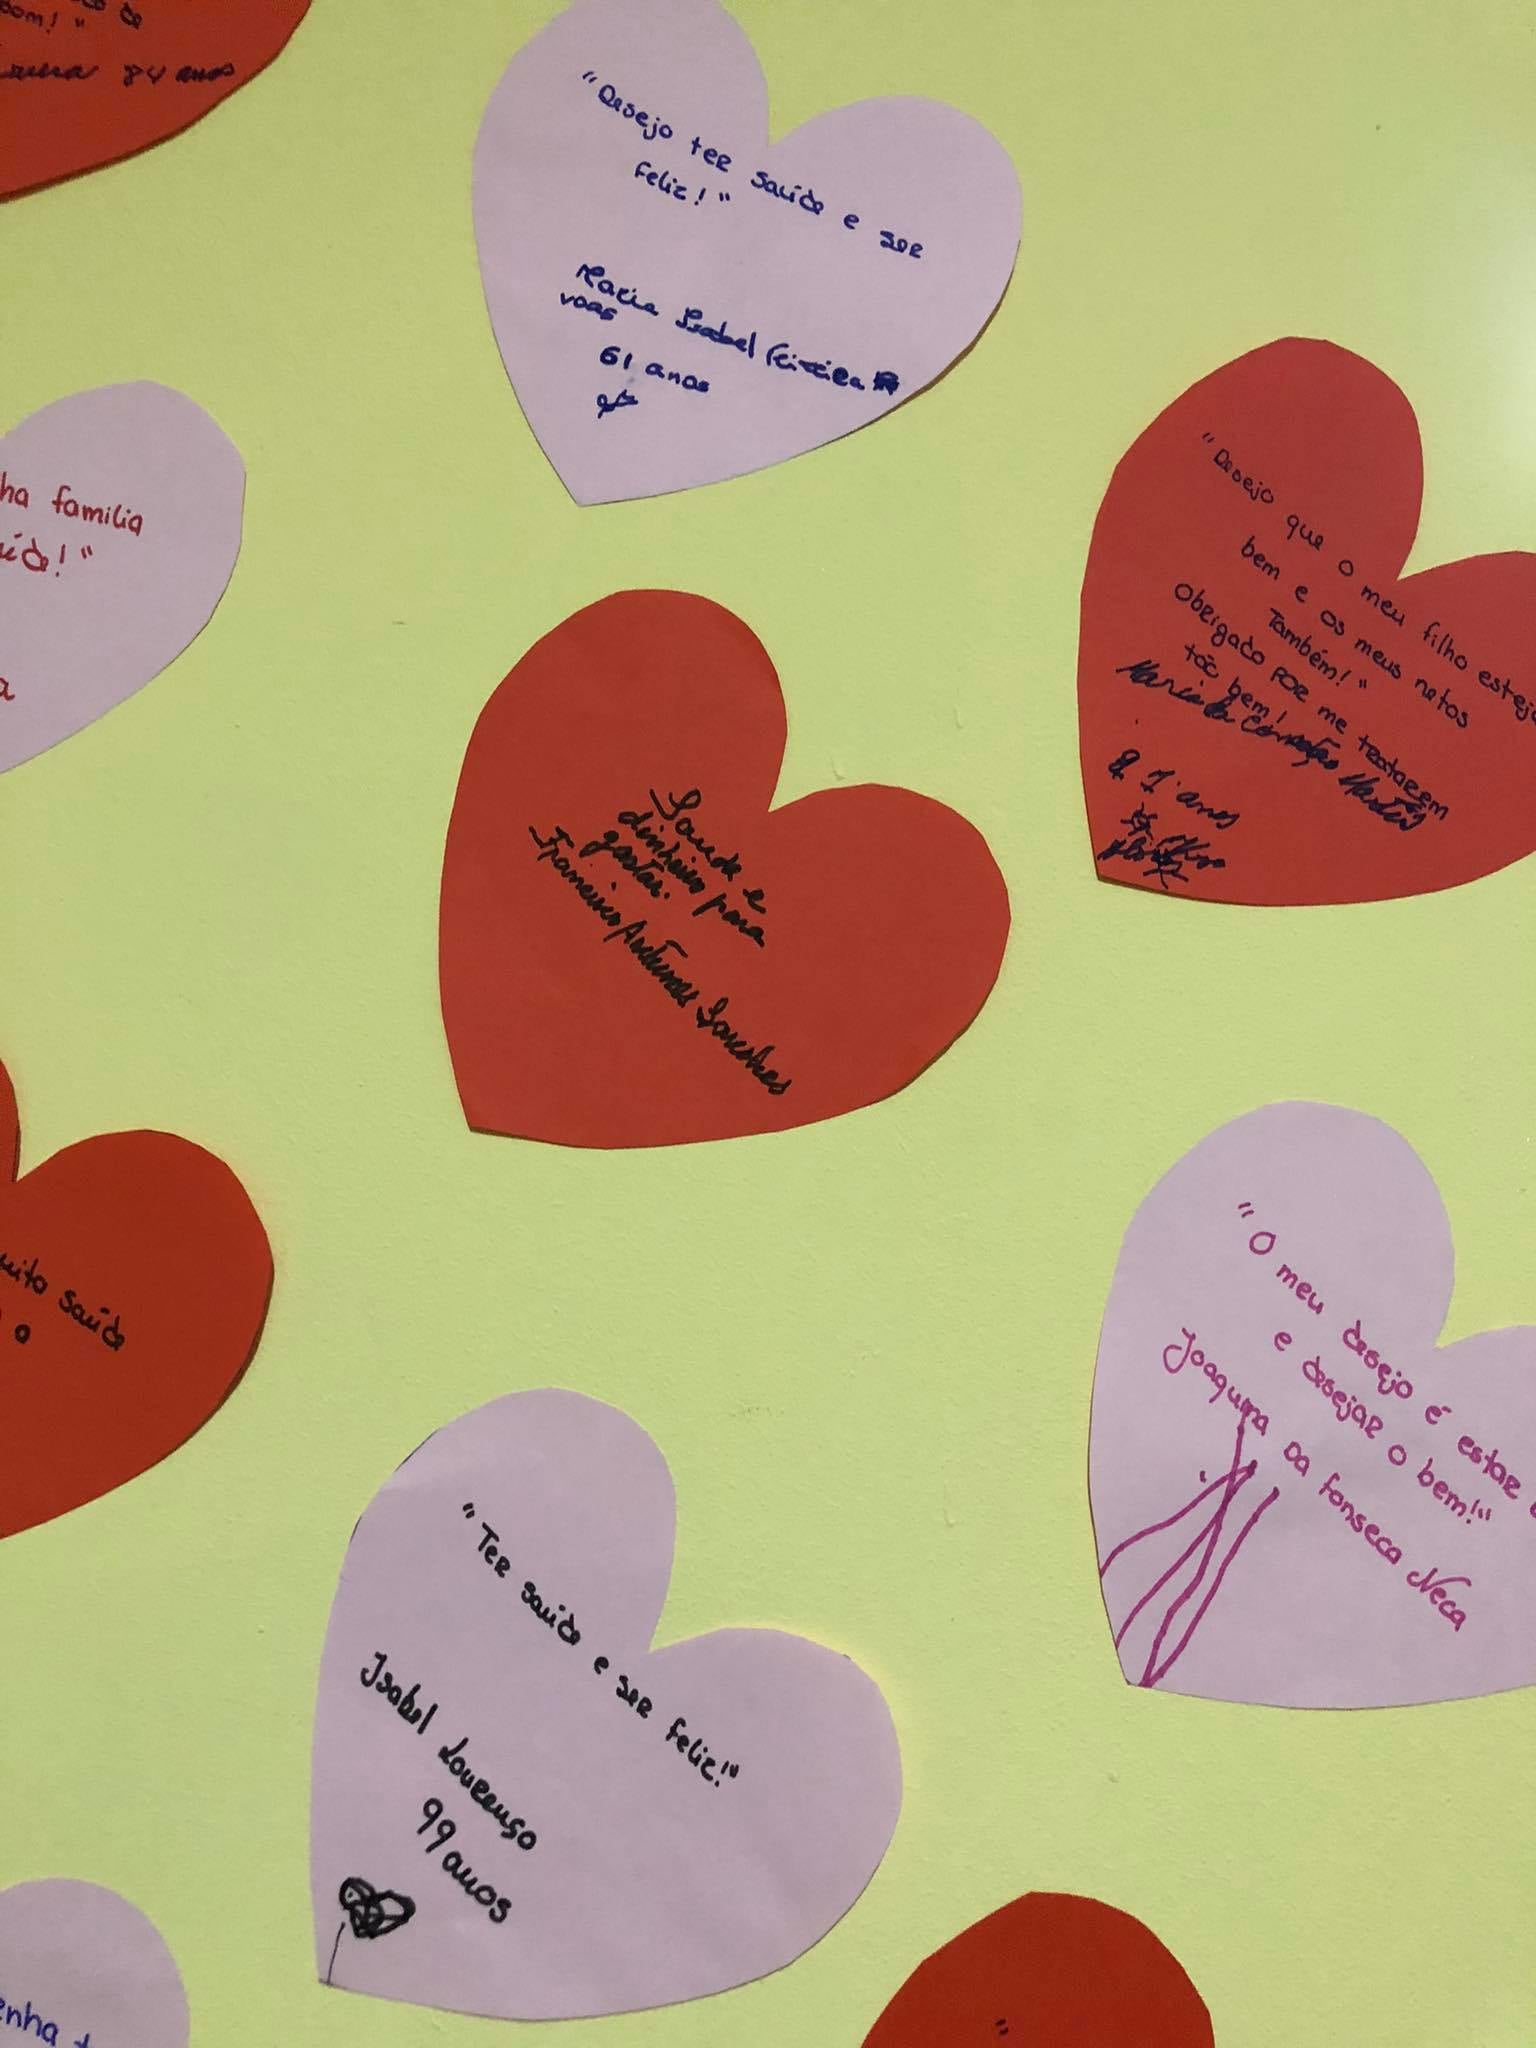 dom!"
84 anos
"Desejo ter saúde e ser
feliz!"
Maria Isabel
61 anos
nha familia
úde!"
a
"Desejo que o meu filho esteja
bem e os meus netos
Também!"
Obrigado por me tratarem
tão bem!
Maria da Conceição Martins
81 anos
Saude e
dinheiro para
gastar.
Francisco Antunes
uito saúde
o
"O meu desejo é estar
e desejar o bem!"
Joaquina da Fonseca Neca
"Ter saúde e ser feliz!"
Isabel Lourenço
99 anos
enha t
"